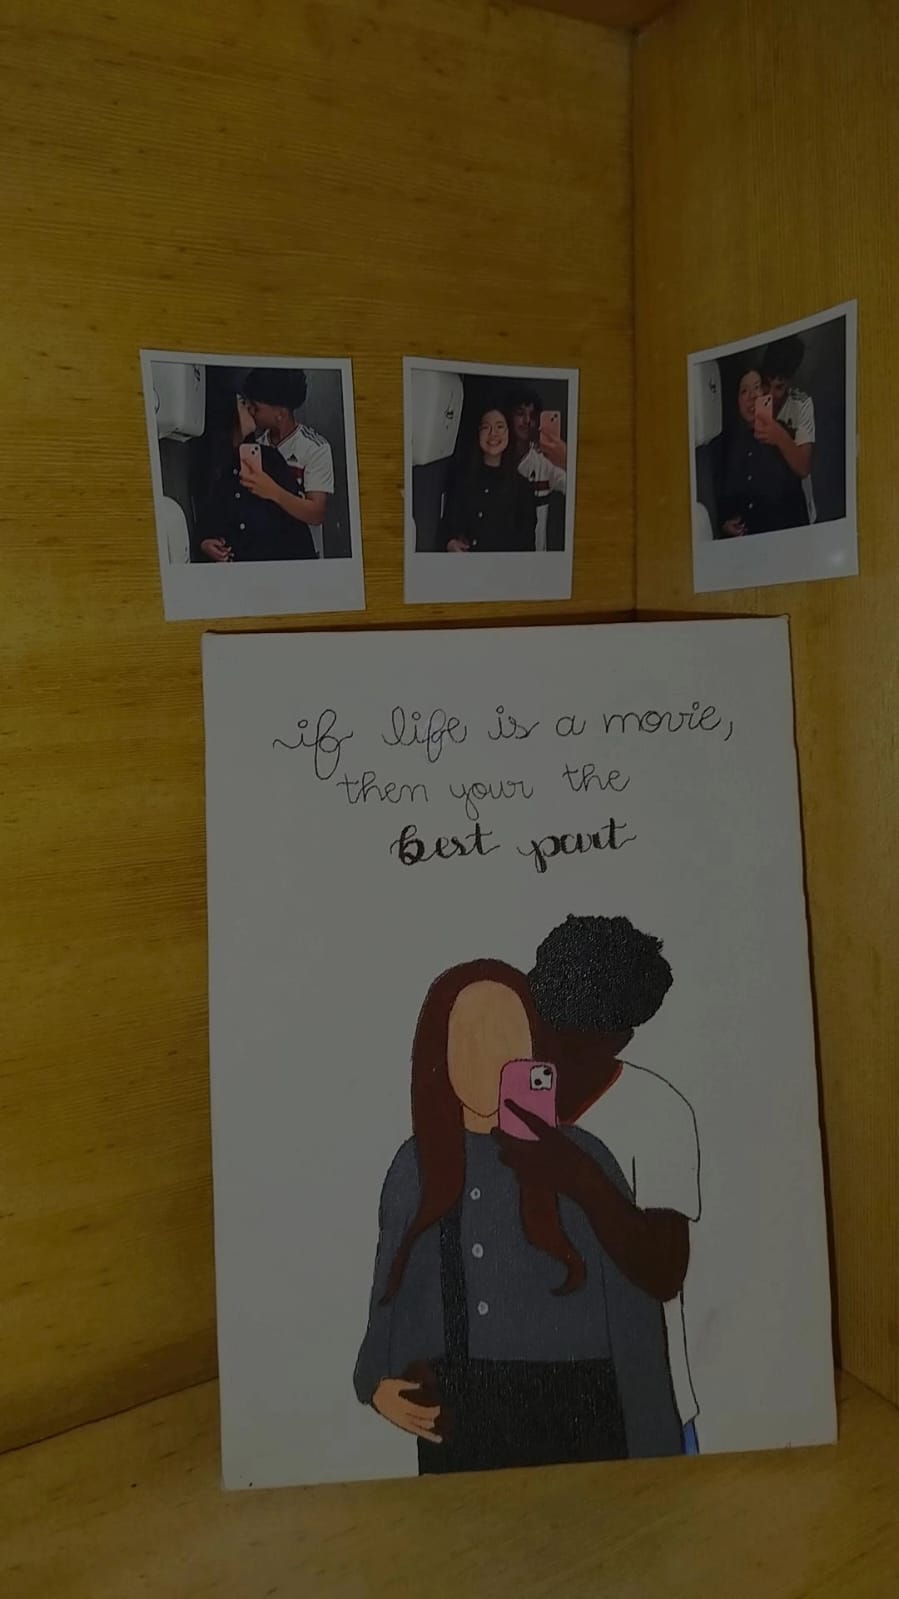 if life is a movie,
then your the
best part